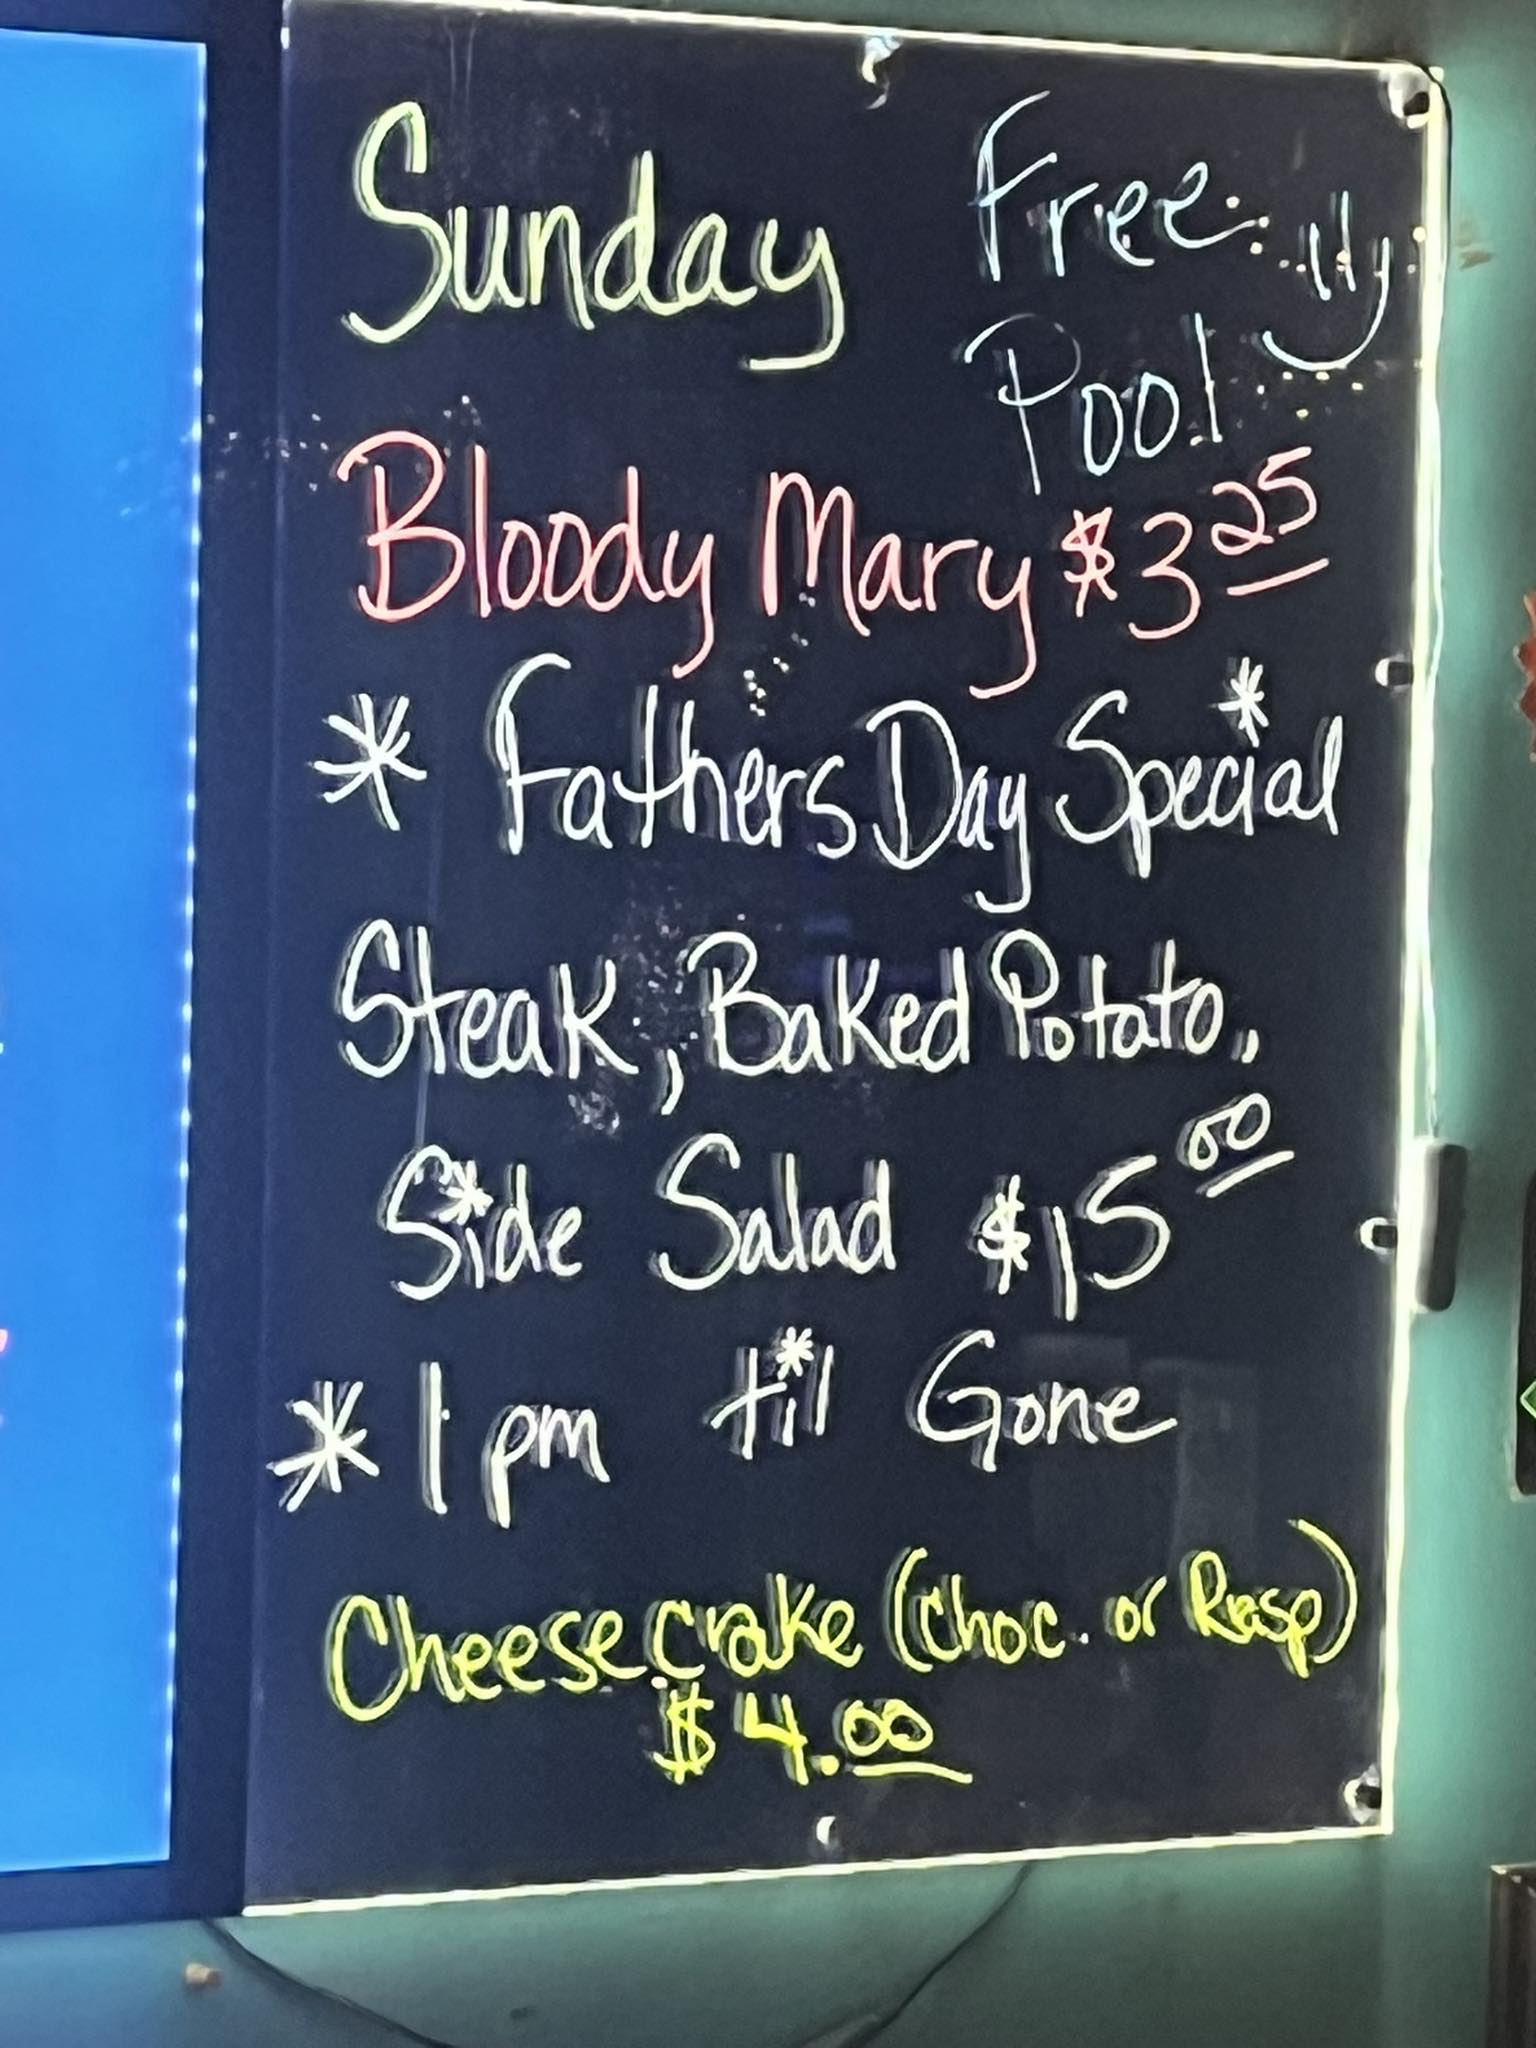 Sunday
Free
Pool
Bloody Mary $3 25
* Fathers Day Special
Steak, Baked Potato,
Side Salad $15 00
* 1 pm til Gone
Cheese crake (choc. or Rasp)
$4.00